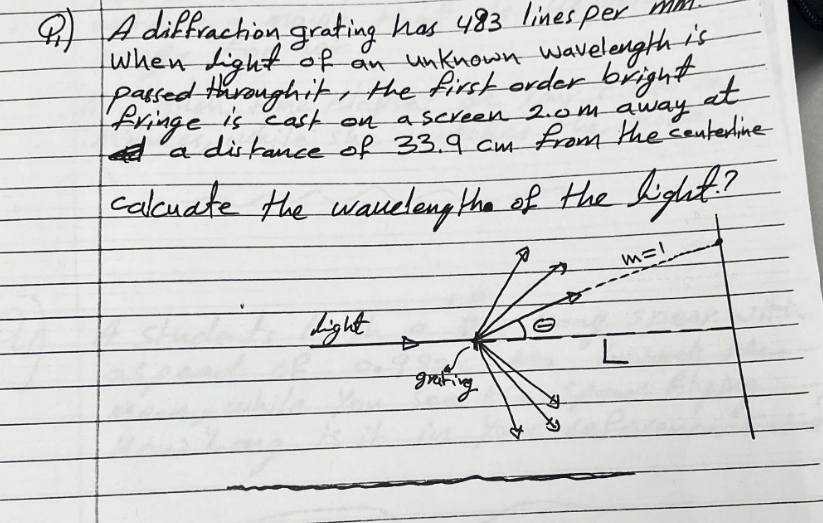 Q1) A diffraction grating has 483 lines per mm.
When light of an unknown wavelength is
passed throughit, the first order bright
fringe is cast on a screen 2.0m away at
a distance of 33.9 cm from the centerline
calcuate the wavelengths of the light?
m=1
light
θ
L
grating